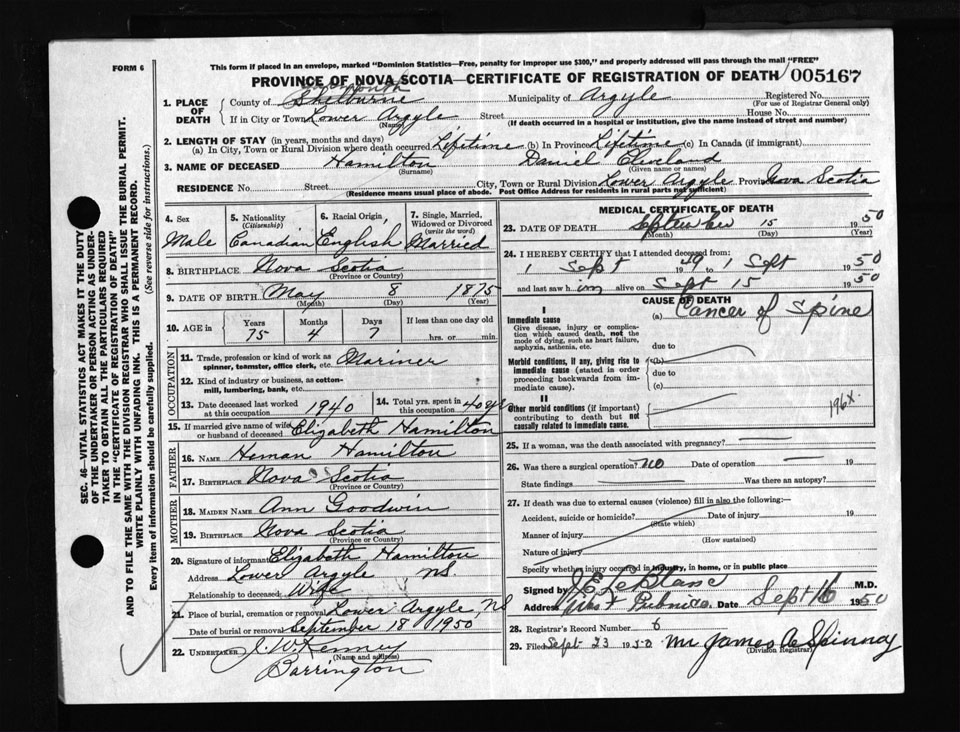 FORM 6
This form if placed in an envelope, marked "Dominion Statistics—Free, penalty for improper use $300," and properly addressed will pass through the mail "FREE"
PROVINCE OF NOVA SCOTIA—CERTIFICATE OF REGISTRATION OF DEATH 005167
1. PLACE OF DEATH
County of Shelburne Municipality of Argyle Registered No.
(For use of Registrar General only)
If in City or Town Lower Argyle Street House No.
(Name) (If death occurred in a hospital or institution, give the name instead of street and number)
2. LENGTH OF STAY (in years, months and days)
(a) In City, Town or Rural Division where death occurred Lifetime (b) In Province Lifetime (c) In Canada (if immigrant)
3. NAME OF DECEASED Hamilton Daniel
(Surname) (Given name or names)
RESIDENCE No. Street City, Town or Rural Division Lower Argyle Province Nova Scotia
(Residence means usual place of abode. Post Office Address for residents in rural parts not sufficient)
4. Sex
Male
5. Nationality
(Citizenship)
Canadian
6. Racial Origin
English
7. Single, Married, Widowed or Divorced
(write the word)
Married
8. BIRTHPLACE Nova Scotia
(Province or Country)
9. DATE OF BIRTH May 8 1875
(Month) (Day) (Year)
10. AGE in
Years Months Days If less than one day old
75 4 7 hrs. or min.
OCCUPATION
11. Trade, profession or kind of work as spinner, teamster, office clerk, etc. Mariner
12. Kind of industry or business, as cotton-mill, lumbering, bank, etc.
13. Date deceased last worked at this occupation 1940
14. Total yrs. spent in this occupation 40 yrs
15. If married give name of wife or husband of deceased Elizabeth Hamilton
FATHER
16. NAME Heman Hamilton
17. BIRTHPLACE Nova Scotia
(Province or Country)
MOTHER
18. MAIDEN NAME Ann Goodwin
19. BIRTHPLACE Nova Scotia
(Province or Country)
20. Signature of informant Elizabeth Hamilton
Address Lower Argyle NS.
Relationship to deceased Wife
21. Place of burial, cremation or removal Lower Argyle, NS
Date of burial or removal September 18 1950
22. UNDERTAKER J. W. Kenney
(Name and address)
Barrington
MEDICAL CERTIFICATE OF DEATH
23. DATE OF DEATH September 15 1950
(Month) (Day) (Year)
24. I HEREBY CERTIFY that I attended deceased from:
1 Sept 1949 to 1 Sept 1950
and last saw him alive on Sept 15 1950
CAUSE OF DEATH
I
Immediate cause
Give disease, injury or complication which caused death, not the mode of dying, such as heart failure, asphyxia, asthenia, etc.
(a) Cancer of Spine
due to
Morbid conditions, if any, giving rise to immediate cause (stated in order proceeding backwards from immediate cause).
(b)
due to
(c)
II
Other morbid conditions (if important) contributing to death but not causally related to immediate cause.
196X
25. If a woman, was the death associated with pregnancy?
26. Was there a surgical operation? no Date of operation 19
State findings Was there an autopsy?
27. If death was due to external causes (violence) fill in also the following:—
Accident, suicide or homicide? Date of injury 19
(State which)
Manner of injury
(How sustained)
Nature of injury
Specify whether injury occurred in industry, in home, or in public place
Signed by J. E. LeBlanc M.D.
Address West Pubnico Date Sept 16 1950
28. Registrar's Record Number 6
29. Filed Sept 23 1950 Mr James A Spinney
(Division Registrar)
SEC. 46—VITAL STATISTICS ACT MAKES IT THE DUTY
OF THE UNDERTAKER OR PERSON ACTING AS UNDER-
TAKER TO OBTAIN ALL THE PARTICULARS REQUIRED
IN THE "CERTIFICATE OF REGISTRATION OF DEATH"
AND TO FILE THE SAME WITH THE DIVISION REGISTRAR WHO SHALL ISSUE THE BURIAL PERMIT.
WRITE PLAINLY WITH UNFADING INK. THIS IS A PERMANENT RECORD.
Every item of information should be carefully supplied. (See reverse side for instructions.)